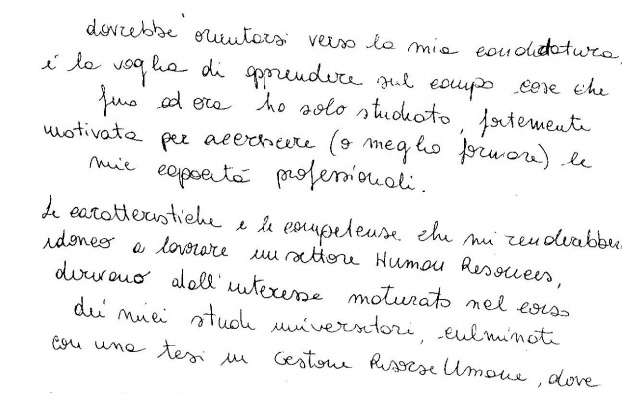 dovrebbe orientarsi verso la mia candidatura,
è la voglia di apprendere sul campo cose che
fino ad ora ho solo studiato, fortemente
motivata per accrescere (o meglio formare) le
mie capacità professionali.
Le caratteristiche e le competenze che mi renderebbero
idoneo a lavorare in settore Human Resources,
derivano dall'interesse maturato nel corso
dei miei studi universitari, culminati
con una tesi in Gestione Risorse Umane, dove